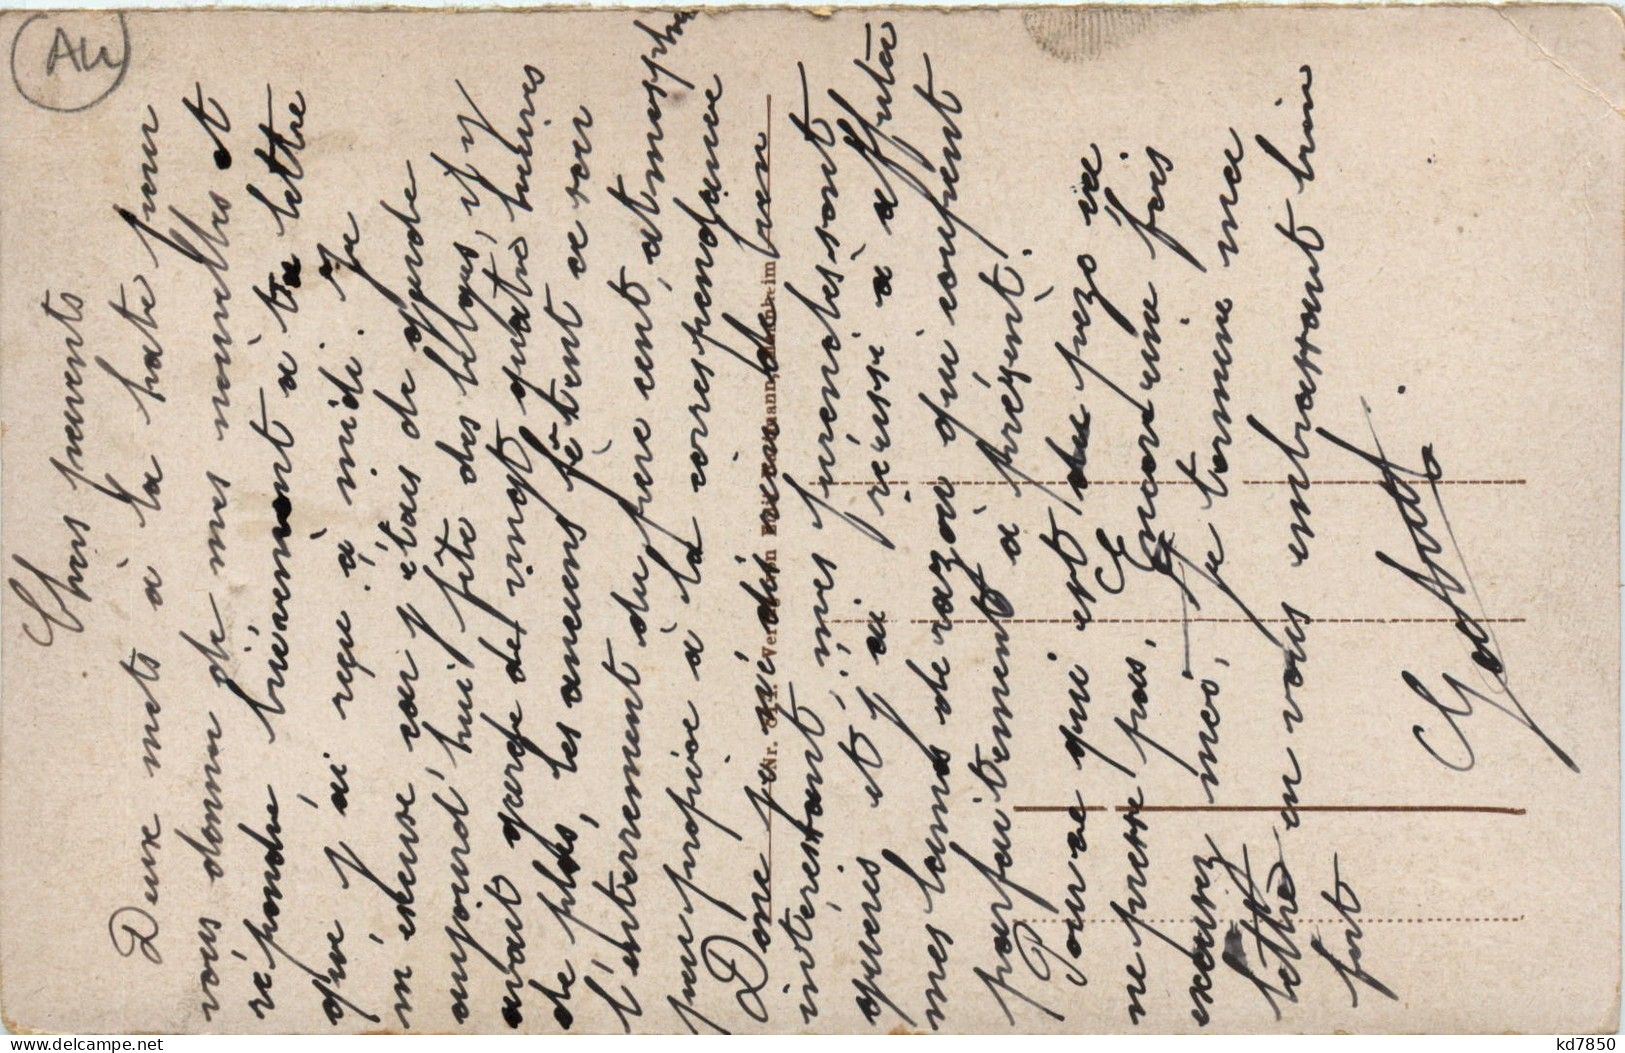 Chers parents
Deux mots à la hate pour
vous donner de mes nouvelles et
répondre brièvement à ta lettre
que j'ai reçu à midi. Je
m'excuse car j'étais de garde
aujourd'hui fête des belges, il y
avait garde de vingt quatre heures
de plus, les anciens fêtent ce soir
l'enterrement du père cent, atmosphère
peu propice à la correspondance
Donc je n'ai rien de bien
intéressant, mes furoncles sont
guéris et j'ai réussi à affuter
mes lames de razoir qui coupent
parfaitement à présent.
Pour ce qui est du ça
ne presse pas. Encore une fois
excusez moi, je termine ma
lettre en vous embrassant bien
fort
Nr. Verlag von mann, Mannheim
AU
kd7850